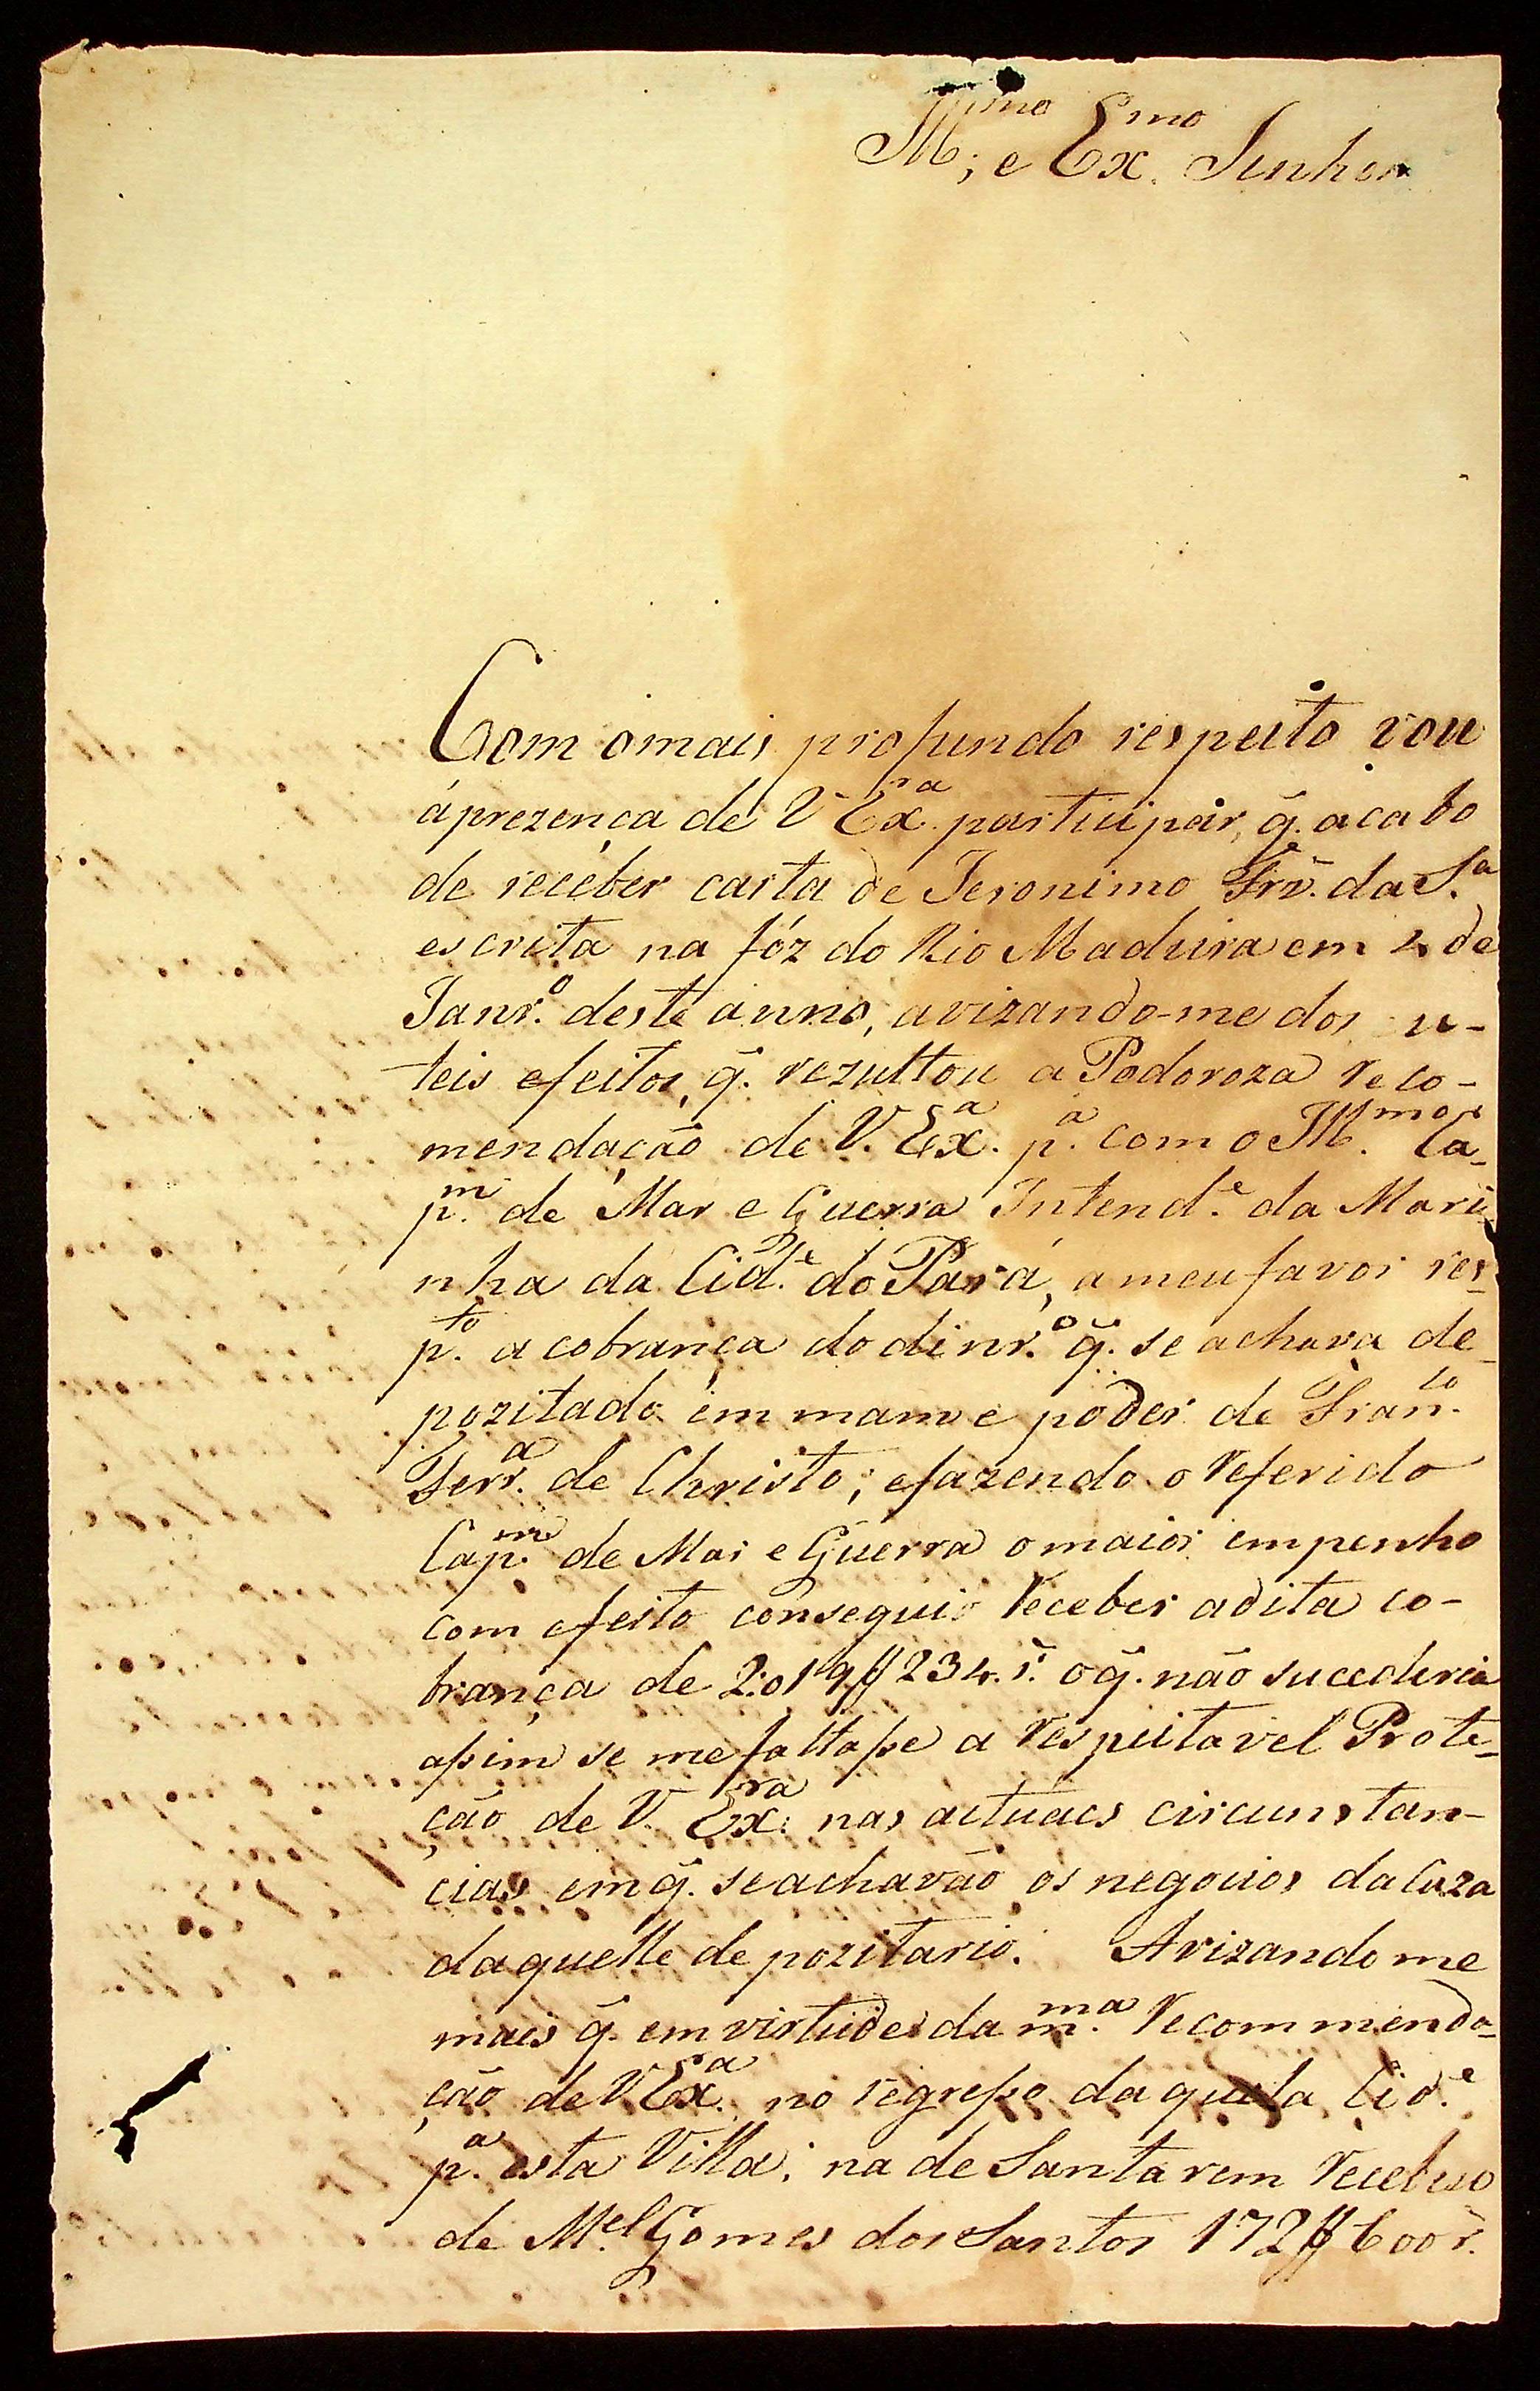 Ill.mo; e Ex.mo Senhor
Com omais profundo respeito vou
áprezença de V Ex.ra participar, q̃. acabo
de receber carta de Jeronimo Frz̃. da S.a
escrita na fóz do Rio Madeira em 4 de
Janr.o deste anno, avizando-me dos u-
teis efeitos, q̃. rezultou a Poderoza reco-
mendação de V. Ex.a p.a com o Ill.mo Ca-
p.m de Mar e Guerra Intend.e da Mari
nha da Cid.e do Pará, a meu favor res-
p.to a cobrança do dinr.o q̃. se achava de-
pozitado em mam e poder de Fran.co
Ferr.a de Christo; efazendo o referido
Cap.m de Mar e Guerra omaior empenho
com efeito conseguio receber adita co-
brança de 2:019$234 r.s oq̃. não sucederia
assim se me faltasse a respeitavel Prote-
ção de V. Ex.ra nas actuaes circunstan-
cias emq̃. seachavão os negocios daCaza
daquelle depozitario. Avizandome
mais q̃. emvirtude da m.ma recommenda-
ção deV Ex.ra no regresso daquela Cid.e
p.a esta Villa; na de Santarem recebeo
de M.el Gomes dos Santos 172$600 r.